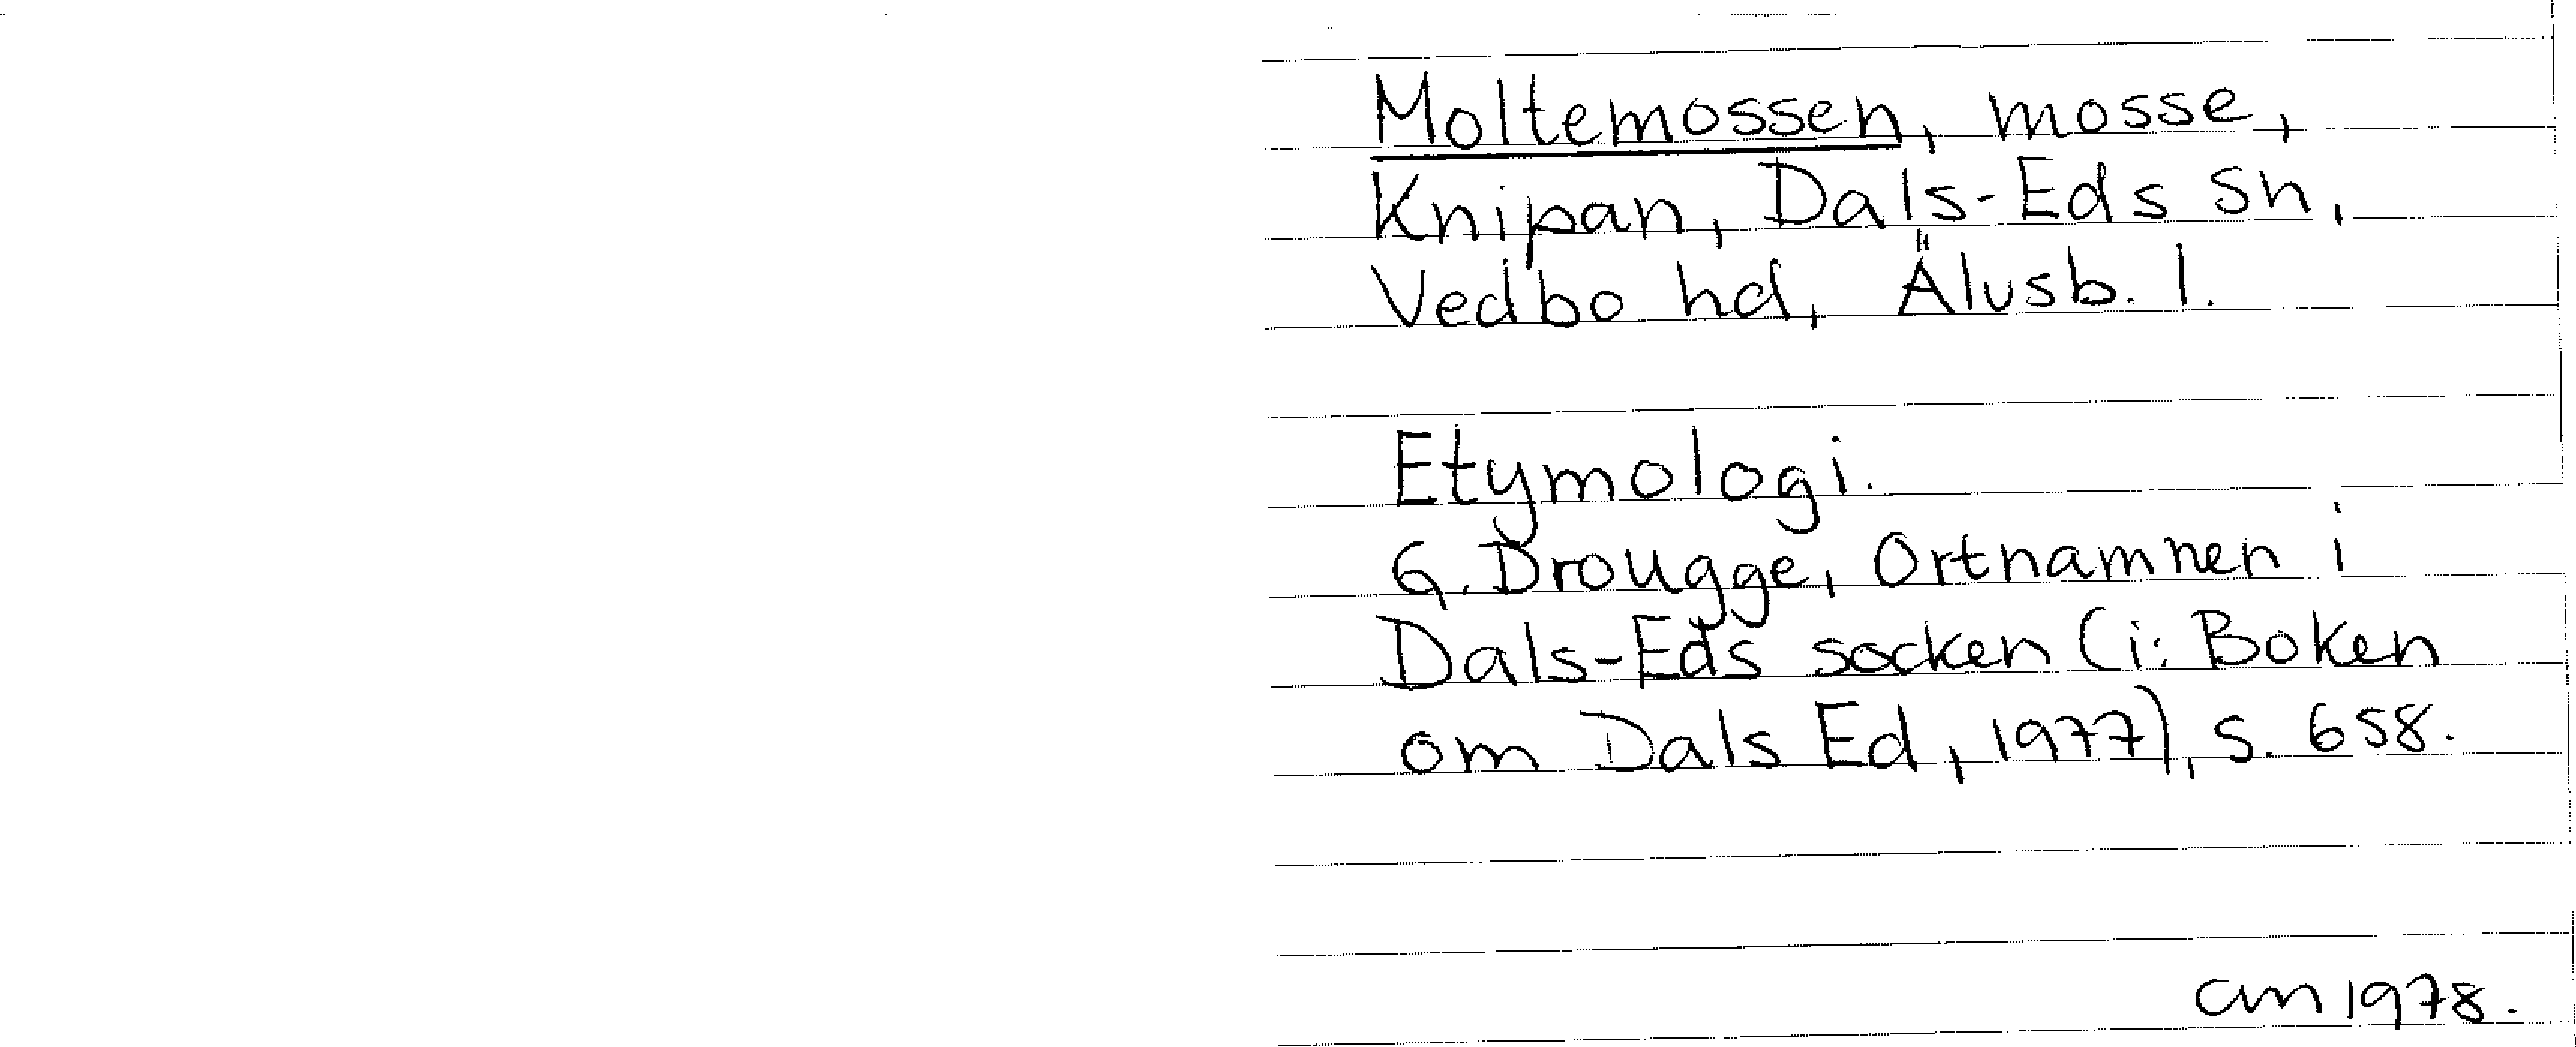 Moltemossen, mosse,
Knipan, Dals-Eds sn,
Vedbo hd, Älvsb. l.
Etymologi.
G. Drougge, Ortnamnen i
Dals-Eds socken (i: Boken
om Dals Ed, 1977), s. 658.
cm 1978.